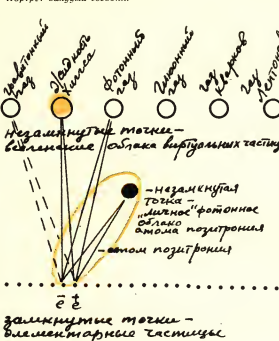 Гравитонный газ
Жидкость Хиггса
Фотонный газ
Глюонный газ
Газ кварков
Газ лептонов
незамкнутые точки –
вселенские облака виртуальных частиц
– незамкнутая
точка –
"личное" фотонное
облако
атома позитрония
– атом позитрония
e⁻ e⁺
замкнутые точки –
элементарные частицы